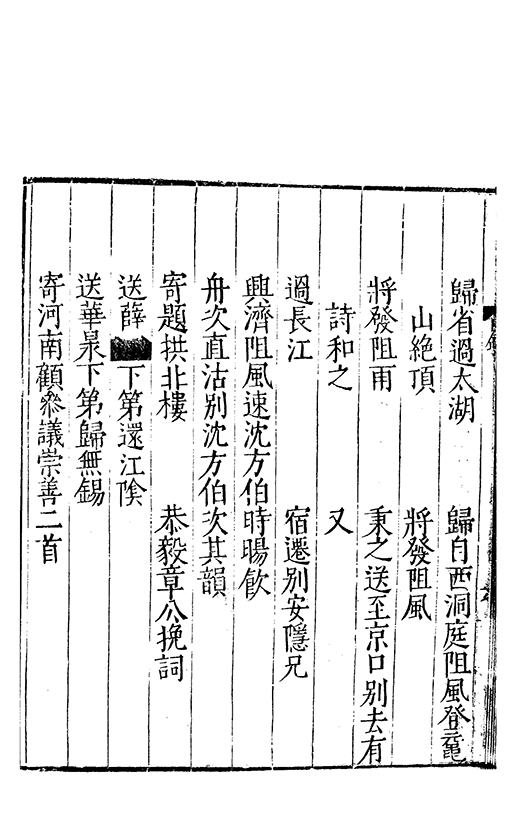 歸省過太湖　歸自西洞庭阻風登黿
山絶頂　將發阻風
將發阻雨　秉之送至京口别去有
詩和之　又
過長江　宿遷别安隱兄
興濟阻風速沈方伯時暘飲
舟次直沽别沈方伯次其韻
寄題拱北樓　恭毅章公挽詞
送薛下第還江隂
送華㫤下第歸無錫
寄河南顧參議崇善二首